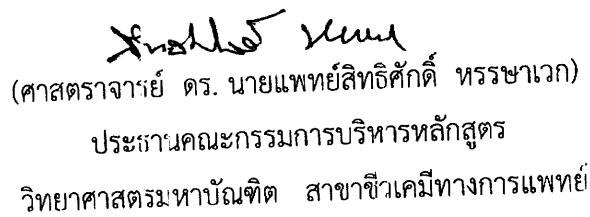 (ศาสตราจารย์ ดร. นายแพทย์สิทธิศักดิ์ หรรษาเวก)
ประธานคณะกรรมการบริหารหลักสูตร
วิทยาศาสตรมหาบัณฑิต สาขาชีวเคมีทางการแพทย์